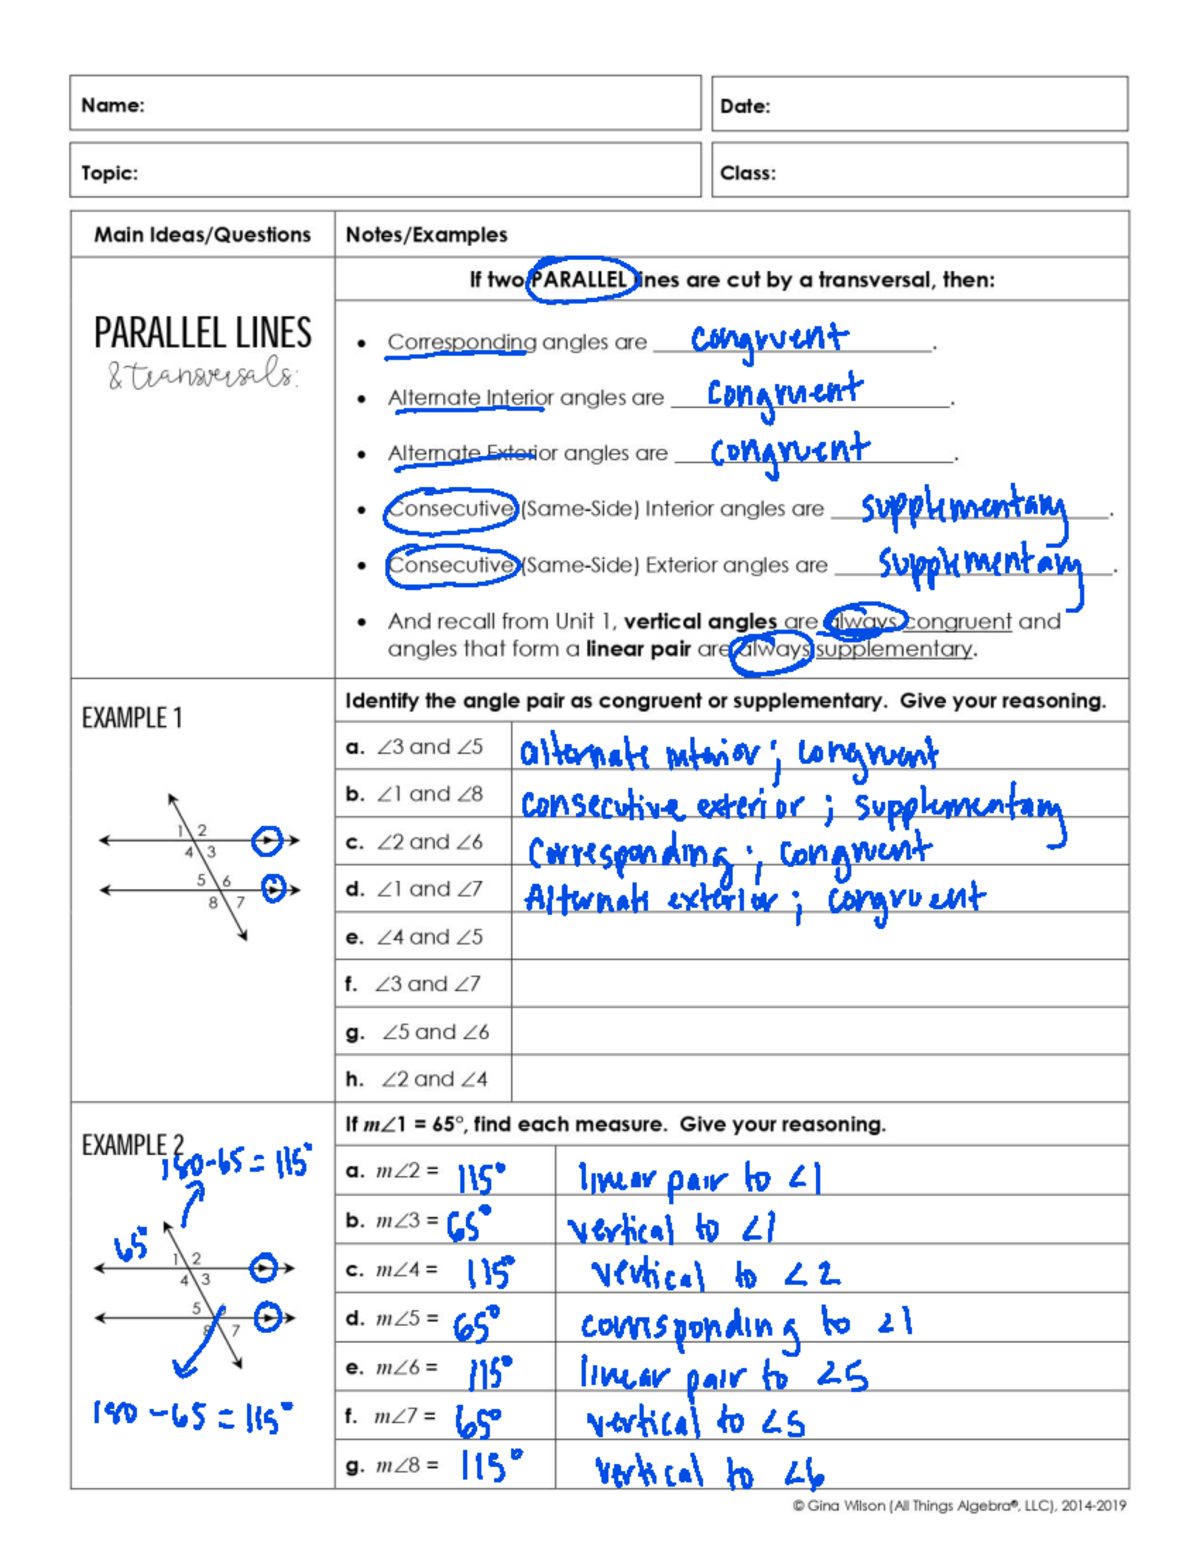 Name:
Date:
Topic:
Class:
Main Ideas/Questions
Notes/Examples
PARALLEL LINES
& transversals:
If two PARALLEL lines are cut by a transversal, then:
• Corresponding angles are congruent.
• Alternate Interior angles are congruent.
• Alternate Exterior angles are congruent.
• Consecutive (Same-Side) Interior angles are supplementary.
• Consecutive (Same-Side) Exterior angles are supplementary.
• And recall from Unit 1, vertical angles are always congruent and
angles that form a linear pair are always supplementary.
EXAMPLE 1
1 2
4 3
5 6
8 7
Identify the angle pair as congruent or supplementary. Give your reasoning.
a. ∠3 and ∠5 alternate interior; congruent
b. ∠1 and ∠8 consecutive exterior; supplementary
c. ∠2 and ∠6 Corresponding; congruent
d. ∠1 and ∠7 Alternate exterior; congruent
e. ∠4 and ∠5
f. ∠3 and ∠7
g. ∠5 and ∠6
h. ∠2 and ∠4
EXAMPLE 2
180-65=115°
65°
1 2
4 3
5 6
8 7
180-65=115°
If m∠1 = 65°, find each measure. Give your reasoning.
a. m∠2 = 115° linear pair to ∠1
b. m∠3 = 65° vertical to ∠1
c. m∠4 = 115° vertical to ∠2
d. m∠5 = 65° corresponding to ∠1
e. m∠6 = 115° linear pair to ∠5
f. m∠7 = 65° vertical to ∠5
g. m∠8 = 115° vertical to ∠6
© Gina Wilson (All Things Algebra®, LLC), 2014-2019